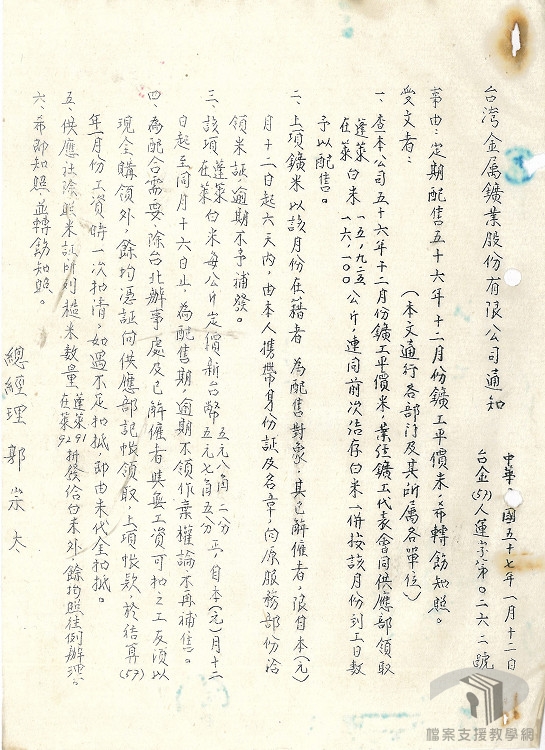 台灣金屬鑛業股份有限公司通知
中華民國五十七年一月十二日
台金(57)人運字第〇二六二號
事由：定期配售五十六年十二月份鑛工平價米，希轉飭知照。
受文者：
(本文通行各部门及其所屬各單位)
一、查本公司五十六年十二月份鑛工平價米，業經鑛工代表會同供應部領取
蓬萊白米一五、九二五
在萊白米一六、一〇〇公斤，連同前次洁存白米一併按該月份到工日数
予以配售。
二、上項鑛米以該月份在籍者為配售對象，其已解僱者，限自本(元)
月十二日起六天內，由本人携帶身份証及名章，向原服務部份洽
領米証逾期不予補發。
三、該項蓬萊在萊白米每公斤定價新台幣五元八角二分五元七角五分正，自本(元)月十二
日起至同月十六日止，為配售期，逾期不領作棄權論不再補售。
四、為配合需要，除台北辦事處及已解僱者與無工資可扣之工友須以
現金購領外，餘均憑証向供應部記帳領取，上項帳款，於结算(57)
年一月份工資時一次扣清，如遇不足扣抵，即由米代金扣抵。
五、供應社除照米証所列糙米数量蓬萊91在萊92折發给白米外，餘均照往例辦理。
六、希即知照並轉飭知照。
總經理 郭
檔案支援教學網